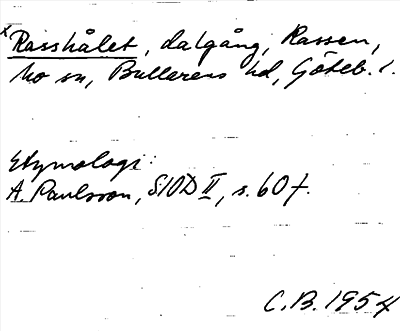 x Rasshålet, dalgång, Rassen,
Mo sn, Bullarens hd, Göteb. l.
Etymologi:
A. Paulsson, SIOD II, s. 60 f.
C.B. 1954